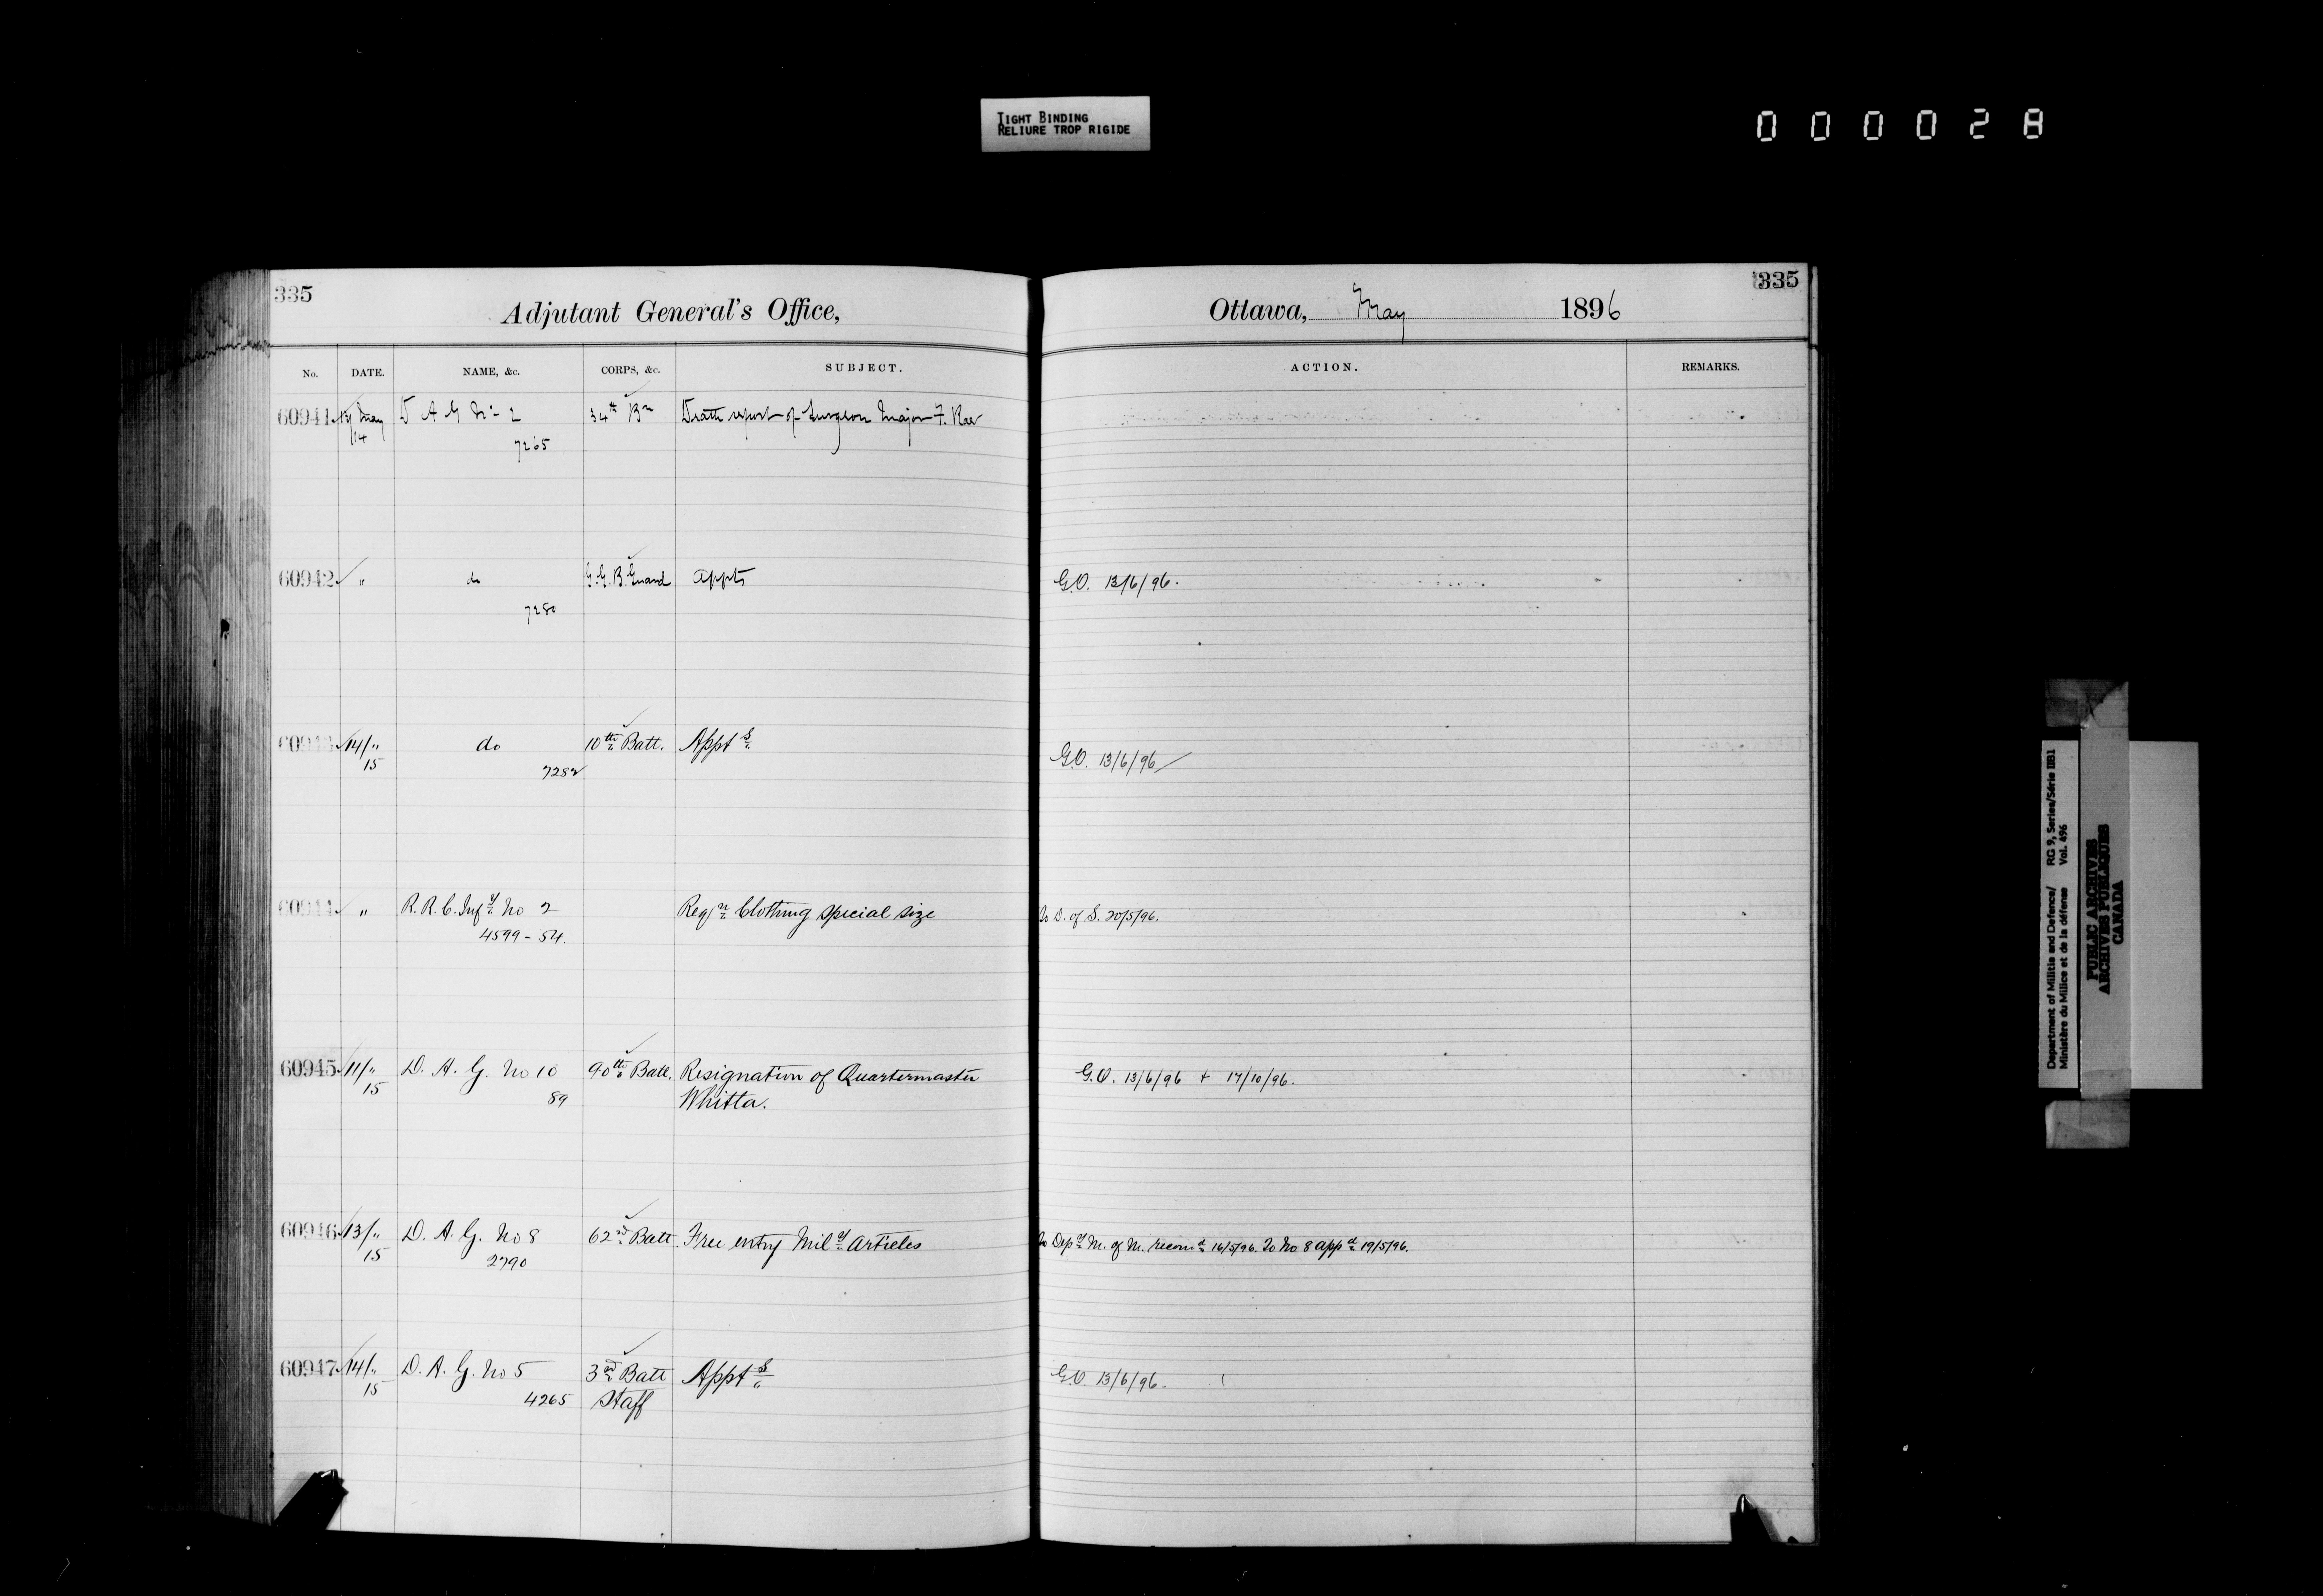 TIGHT BINDING
RELIURE TROP RIGIDE
000028
335
Adjutant General's Office,
Ottawa, May 1896
335
No. DATE. NAME, &c. CORPS, &c. SUBJECT. ACTION. REMARKS.
60941 13/May D A G No 2 34th Bn Death report of Surgeon Major F. Rae
14 7265
60942 " do G.G.B.Guard Appts G.O. 13/6/96.
7280
60943 14/" do 10th Batt. Appts G.O. 13/6/96
15 7282
60944 " R.R.C.Infy No 2 Reqn Clothing special size To D. of S. 20/5/96.
4599-54.
60945 11/" D. A. G. No 10 90th Batt. Resignation of Quartermaster G.O. 13/6/96 + 17/10/96.
15 89 Whitla.
60946 13/" D. A. G. No 8 62nd Batt Free entry Mily Articles To Depy M. of M. recomd 16/5/96. To No 8 appd 19/5/96.
15 2790
60947 14/" D. A. G. No 5 3rd Batt Appts G.O. 13/6/96.
15 4265 Staff
Department of Militia and Defence/ RG 9, Series/Série IIB1
Ministère du Milice et de la défense Vol. 496
PUBLIC ARCHIVES
ARCHIVES PUBLIQUES
CANADA